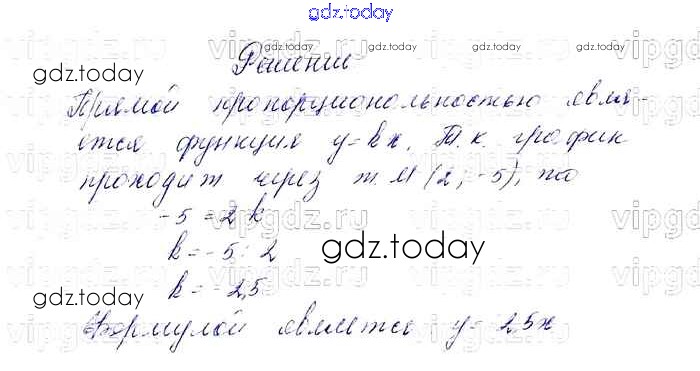 gdz.today
Решение
Прямой пропорциональностью явля-
ется функция y=kx. Т.к. график
проходит через т. М (2; -5), то
-5 = 2k
k = -5 : 2
k = -2,5
Формулой является y= 2,5x
gdz.today
gdz.today
gdz.today
gdz.today
gdz.today
gdz.today